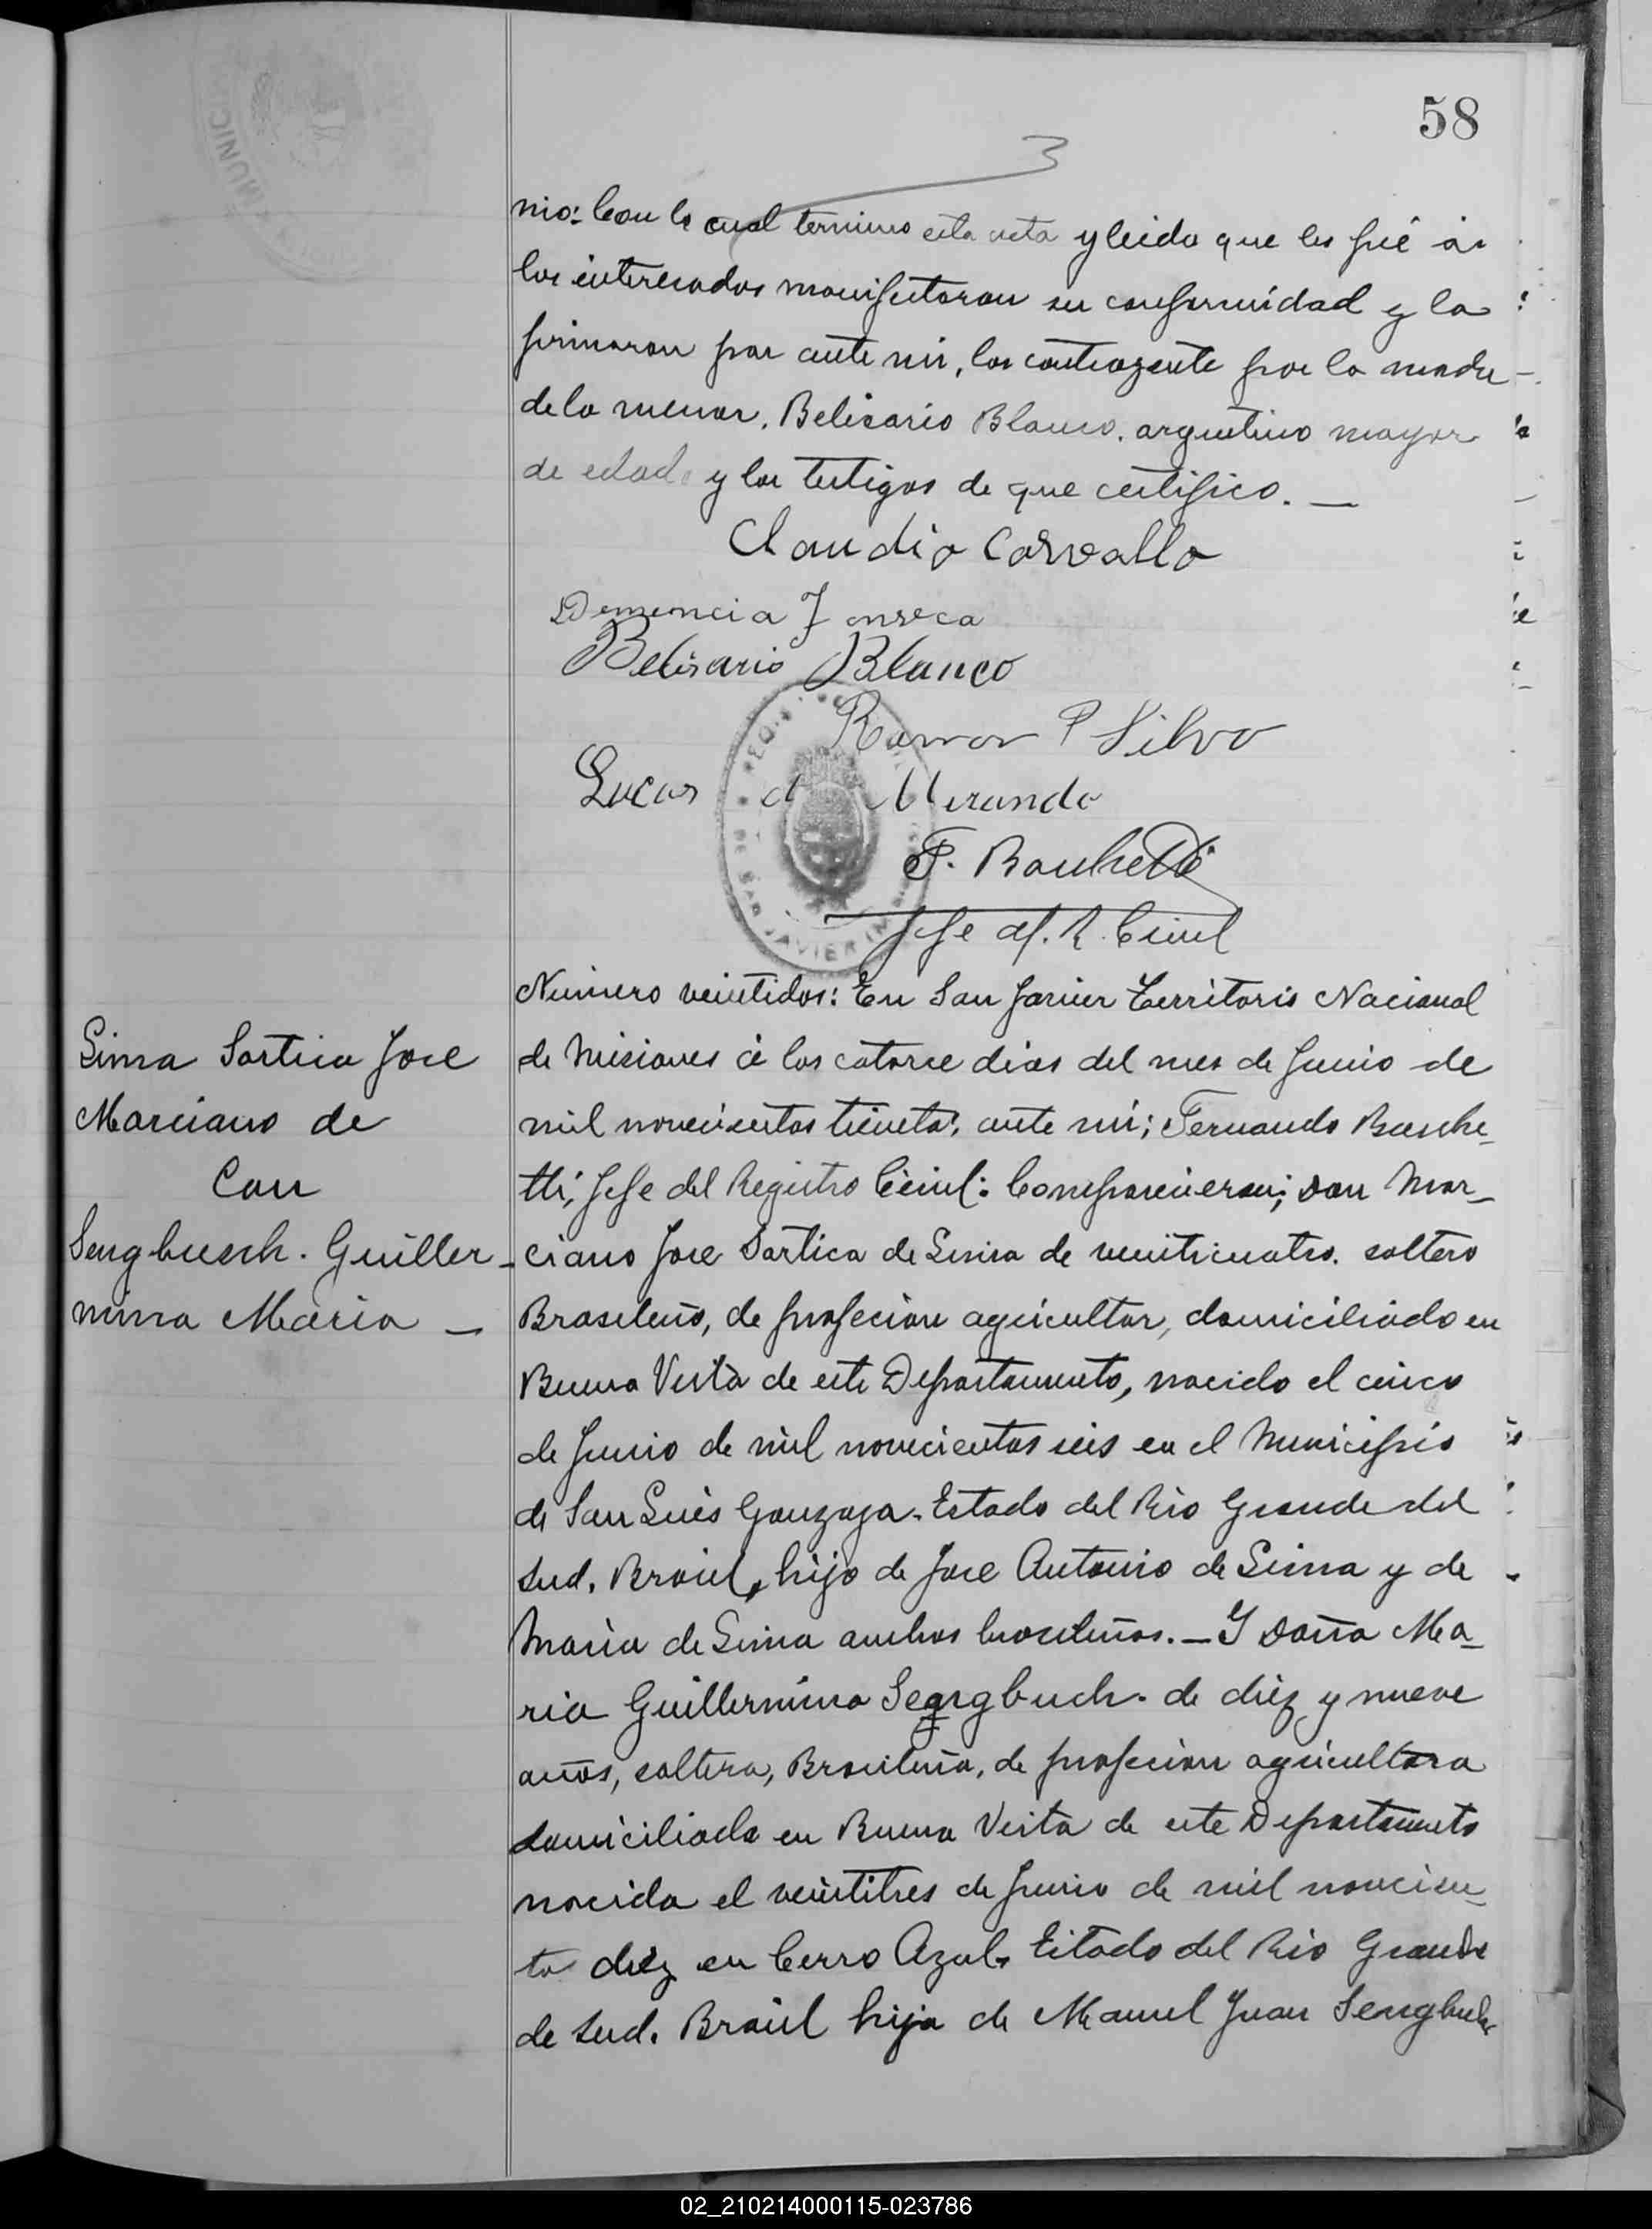 58
3
nio: Con lo cual termino esta acta y leida que les fué á
los interesados manifestaron su conformidad y la
firmaron por ante mi, los contrayente por la madre
de la menor, Belisario Blanco, argentino mayor
de edad y los testigos de que certifico. —
Claudio Carvallo
Demencia Fonseca
Belisario Blanco
Ramon P Silva
Lucas d Miranda
F. Baschetti
Jefe del R. Civil
DE SAN JAVIER
Numero veintidos: En San Javier Territorio Nacional
Lima Sartica Jose
Marciano de
Con
Sengbusch. Guiller-
mina Maria —
de Misiones á los catorce dias del mes de Junio de
mil novecientos treinta, ante mi; Fernando Basche-
tti, Jefe del Registro Civil: Comparecieron; Don Mar-
ciano Jose Sartica de Lima de veinticuatro. soltero
Brasileño, de profecion agricultor, domiciliado en
Buena Vista de este Departamento, nacido el cinco
de Junio de mil novecientos seis en el Municipio
de San Luis Gonzaga. Estado del Rio Grande del
Sud. Brasil, hijo de Jose Antonio de Lima y de
Maria de Lima ambos brasileños. — Y Doña Ma-
ria Guillermina Sengbuch. de diez y nueve
años, soltera, Brasileña, de profecion agricultora
domiciliada en Buena Vista de este Departamento
nacida el veintitres de Junio de mil novecien-
to diez en Cerro Azul. Estado del Rio Grande
de Sud. Brasil hija de Manuel Juan Sengbuch
02_210214000115-023786